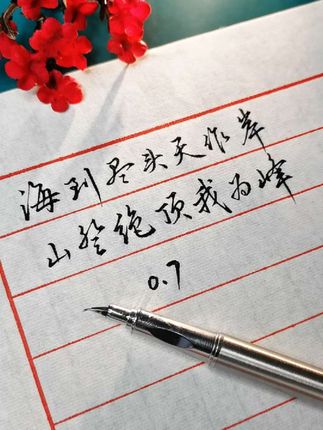 海到尽头天作岸
山登绝顶我为峰
0.7